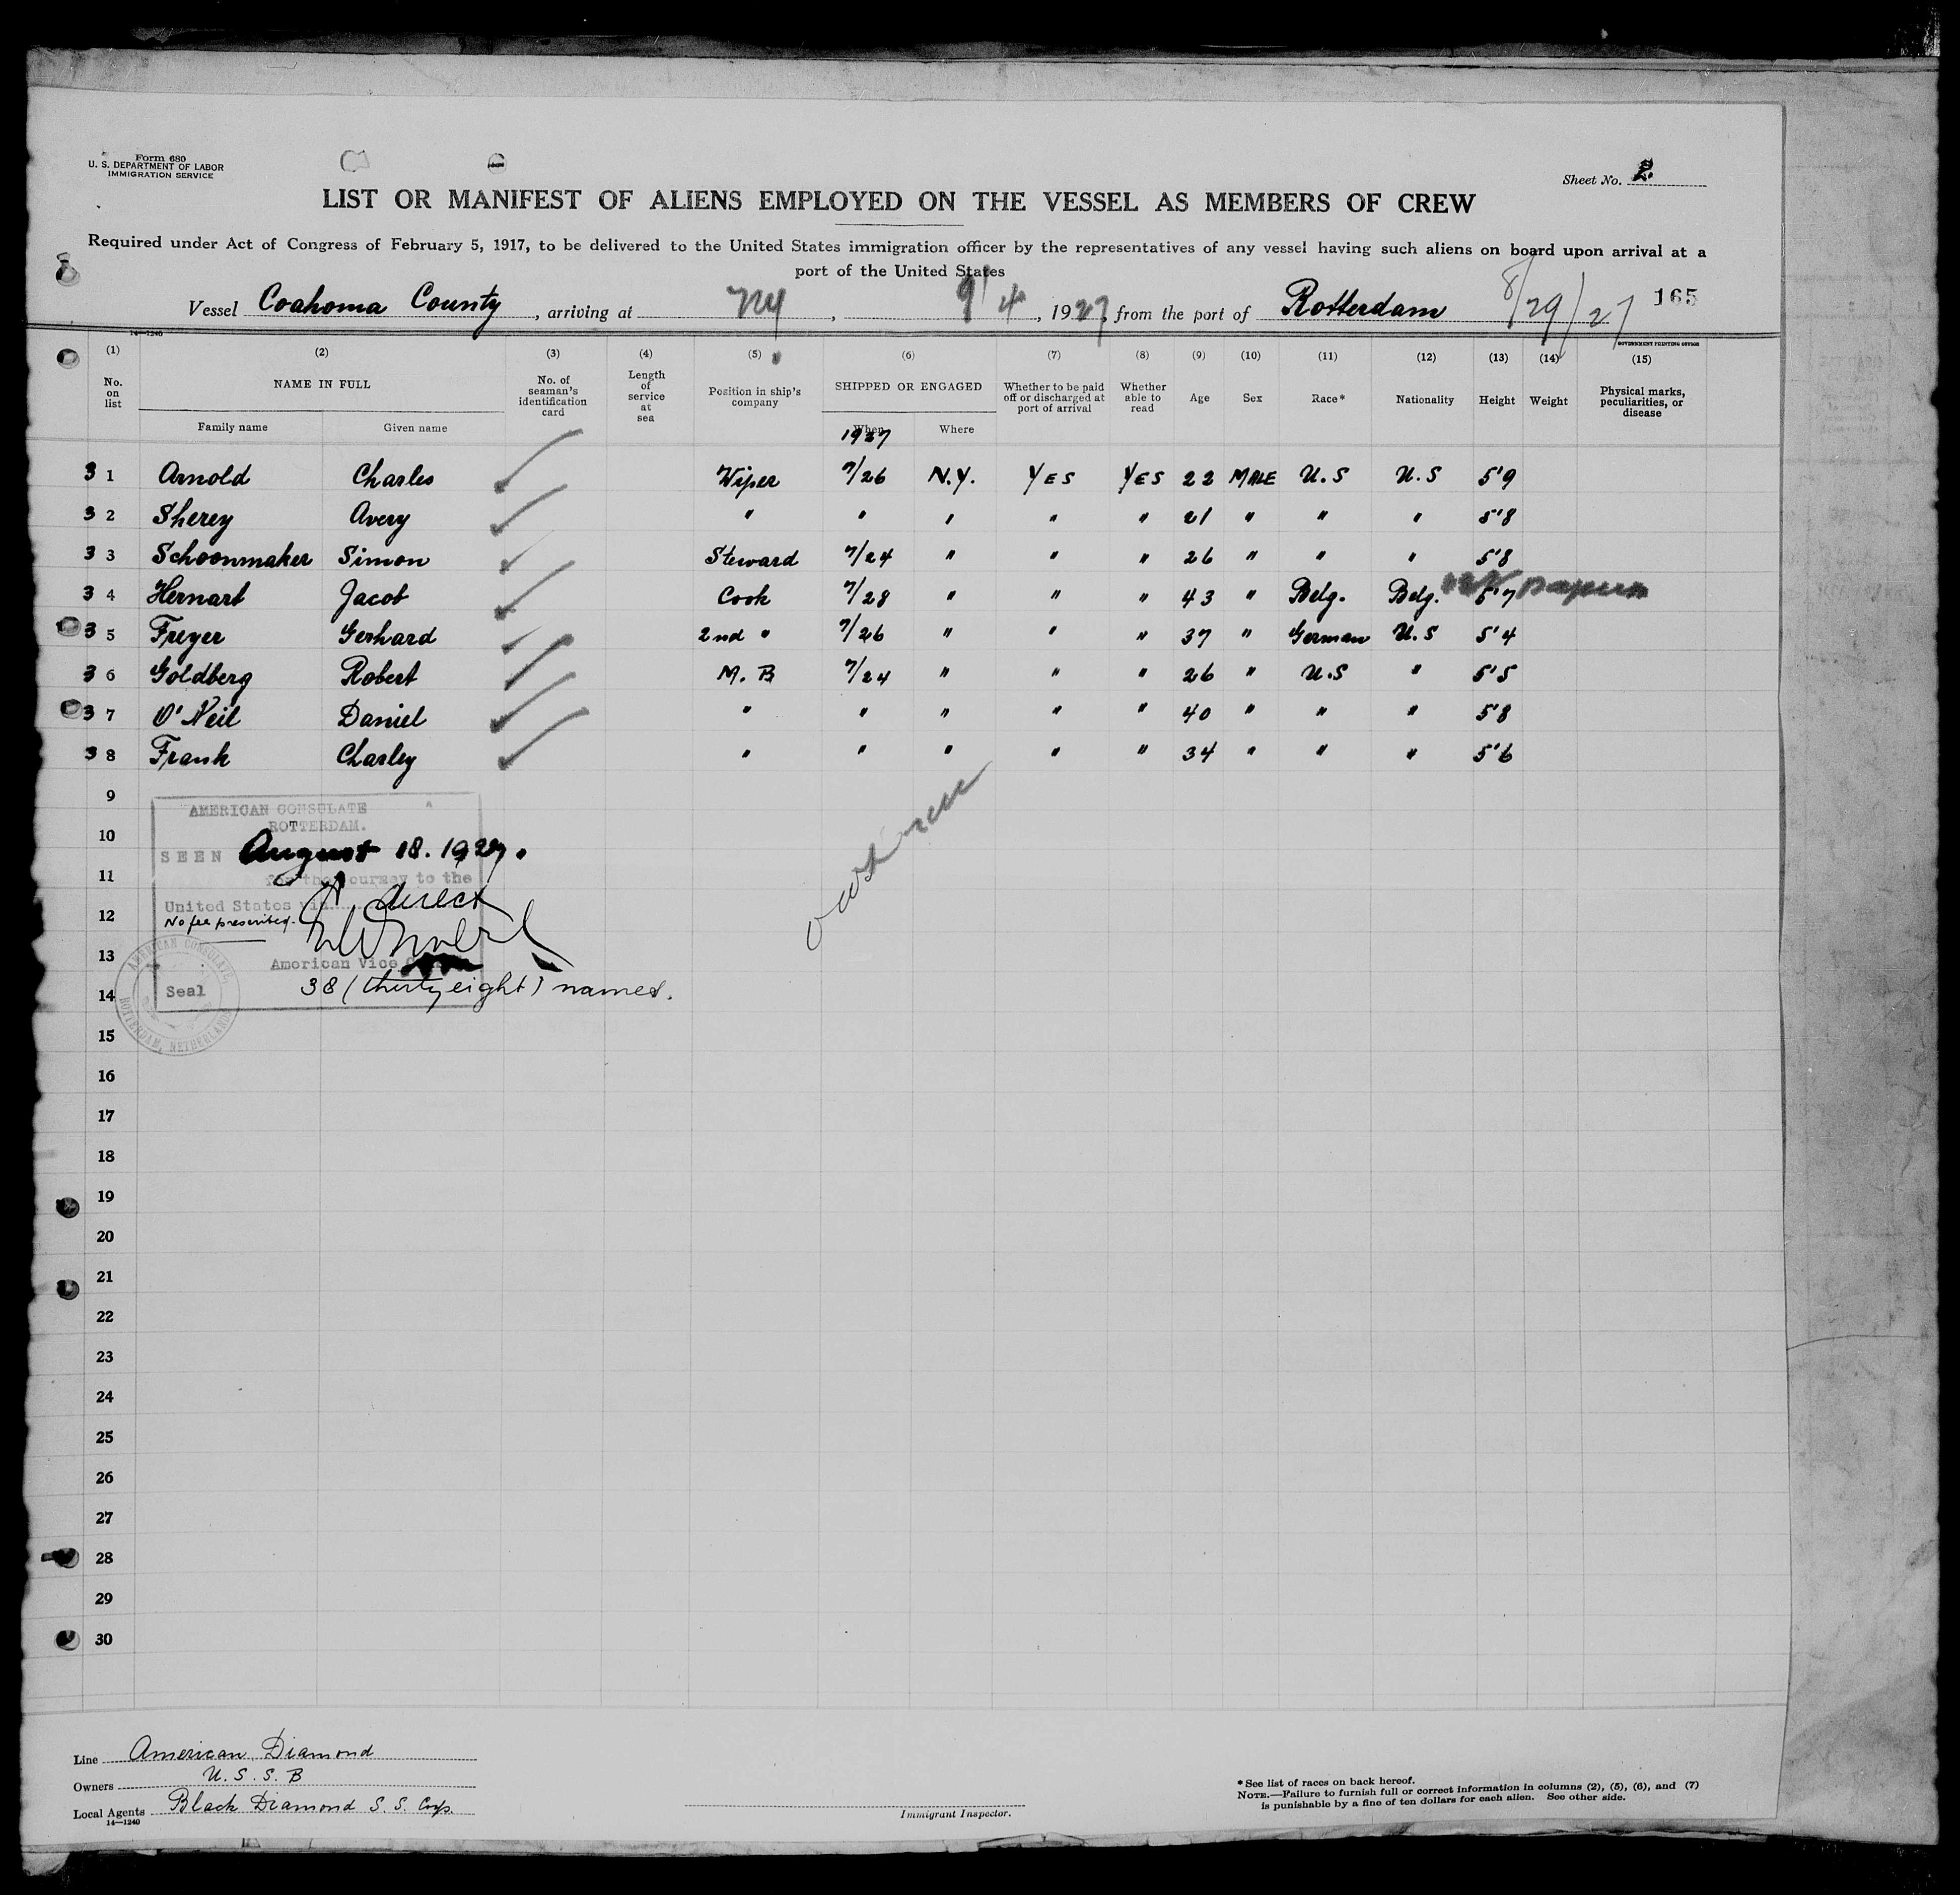 Form 680
U. S. DEPARTMENT OF LABOR
IMMIGRATION SERVICE
Sheet No. 2.
LIST OR MANIFEST OF ALIENS EMPLOYED ON THE VESSEL AS MEMBERS OF CREW
Required under Act of Congress of February 5, 1917, to be delivered to the United States immigration officer by the representatives of any vessel having such aliens on board upon arrival at a
port of the United States
Vessel Coahoma County, arriving at NY, 9/4, 1927, from the port of Rotterdam 8/29/27 165
14—1240
GOVERNMENT PRINTING OFFICE
(1) (2) (3) (4) (5) (6) (7) (8) (9) (10) (11) (12) (13) (14) (15)
No. on list NAME IN FULL No. of seaman's identification card Length of service at sea Position in ship's company SHIPPED OR ENGAGED Whether to be paid off or discharged at port of arrival Whether able to read Age Sex Race* Nationality Height Weight Physical marks, peculiarities, or disease
Family name Given name When Where
1927
3 1 Arnold Charles Wiper 7/26 N.Y. YES YES 22 MALE U.S U.S 5'9
3 2 Sherey Avery " " " " " 21 " " " 5'8
3 3 Schoonmaker Simon Steward 7/24 " " " 26 " " " 5'8
3 4 Hernart Jacob Cook 7/28 " " " 43 " Belg. Belg. 5'7 papers
3 5 Freyer Gerhard 2nd " 7/26 " " " 37 " German U.S 5'4
3 6 Goldberg Robert M. B 7/24 " " " 26 " U.S " 5'5
3 7 O'Neil Daniel " " " " " 40 " " " 5'8
3 8 Frank Charley " " " " " 34 " " " 5'6
9
10
11
12
13
14
15
16
17
18
19
20
21
22
23
24
25
26
27
28
29
30
AMERICAN CONSULATE
ROTTERDAM.
SEEN August 18. 1927.
for the journey to the
United States via direct
No fee prescribed.
American Vice
Seal
38 (thirty eight) names.
AMERICAN CONSULATE, ROTTERDAM, NETHERLANDS
Line American Diamond
Owners U. S. S. B
Local Agents Black Diamond S. S. Corp.
14—1240
Immigrant Inspector.
* See list of races on back hereof.
NOTE.—Failure to furnish full or correct information in columns (2), (5), (6), and (7)
is punishable by a fine of ten dollars for each alien. See other side.